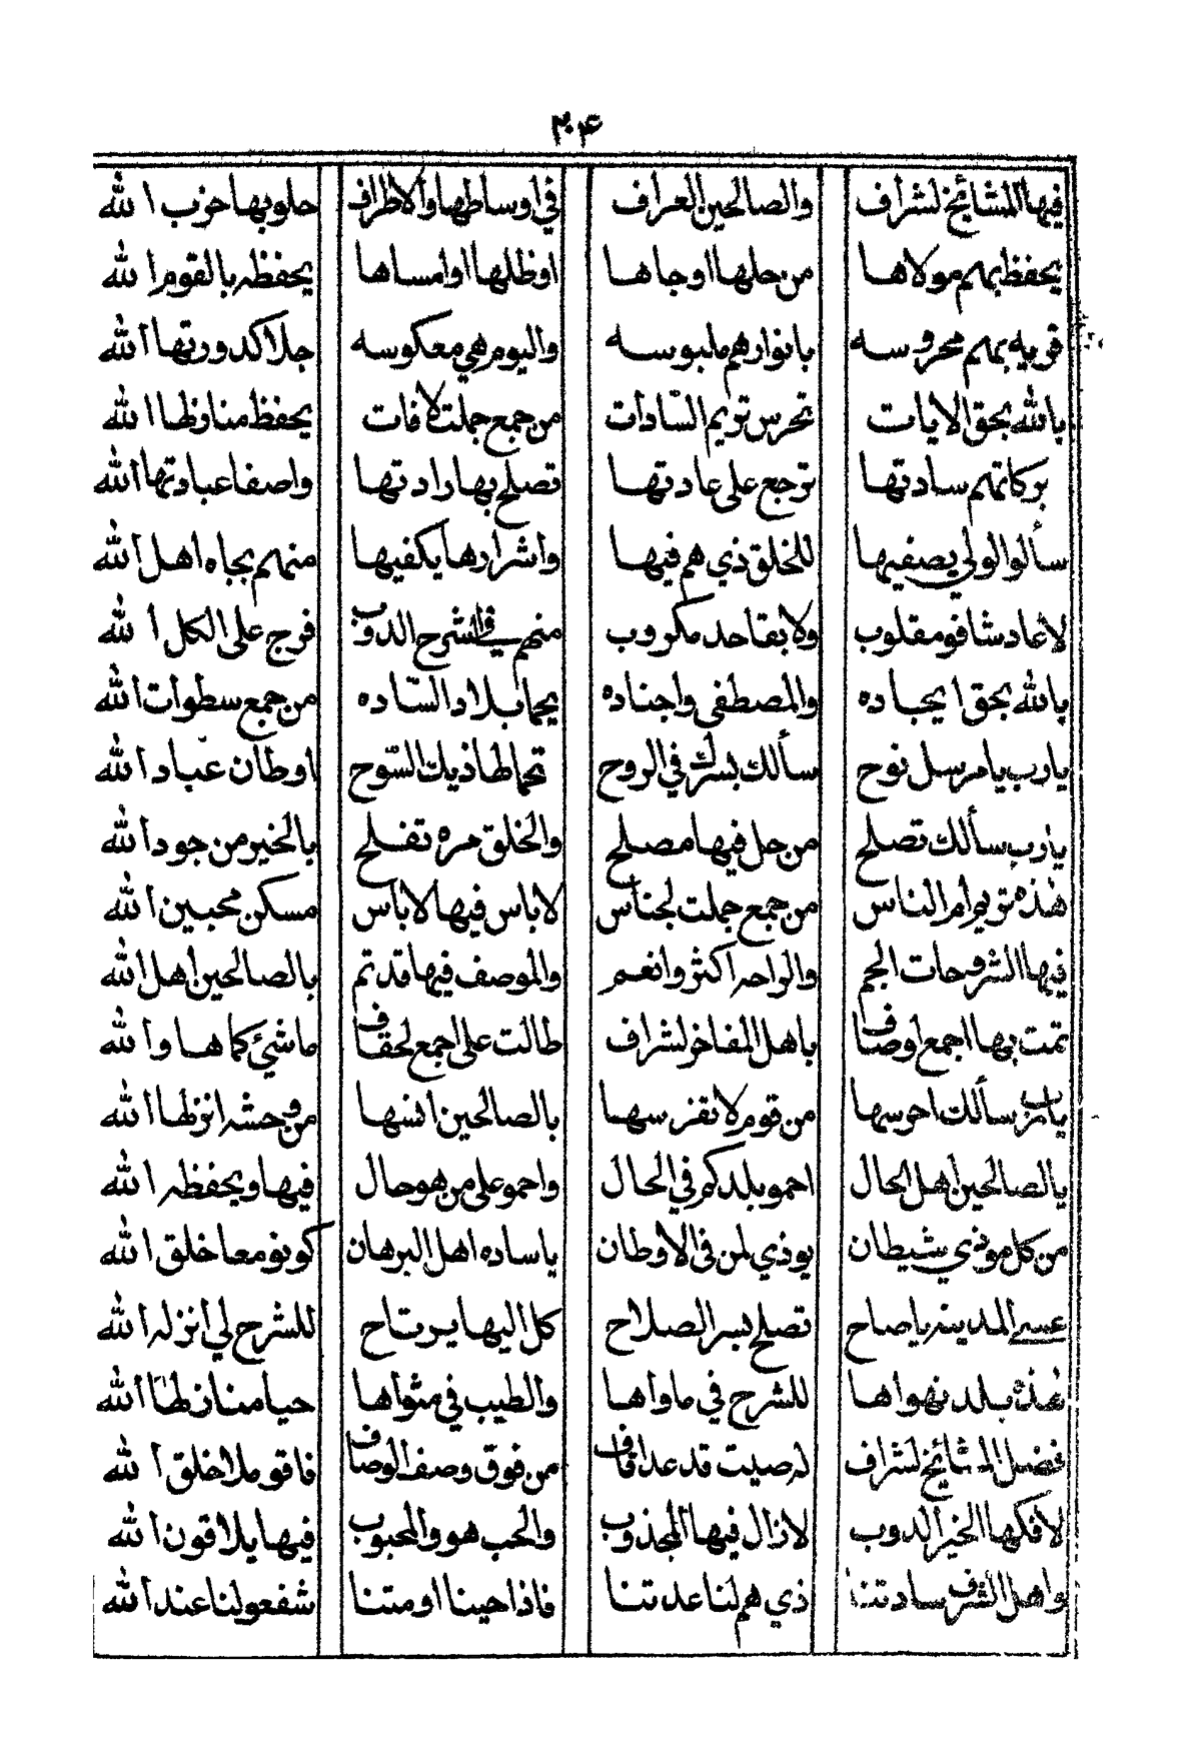 ٢٠٤
فيها المشائخ لشراف والصالحين العراف في اوساطها والاطراف حلو بها حزب الله
يحفظ بهم مولاها من حلها اوجاها اوظلها اوامساها يحفظه بالقوم الله
قريه بهم محروسه بانوارهم ملبوسه واليوم هي معكوسه جلا كدورتها الله
يالله بحق الايات تحرس تريم السّادات من جمع جملت لافات يحفظ مناوظها الله
بركاتهم سادتها ترجع على عادتها تصلح بها رادتها واصفا عبادتها الله
سألوا لولي يصفيها للخلق ذي هم فيها واشرارها يكفيها منهم بجاه اهل الله
لاعاد شافو مقلوب ولا بقا حد مكروب منهم في الشرح الدوب فرج على الكل الله
يالله بحق ايجاده والمصطفى واجناده يحما بلاد السّاده من جمع سطوات الله
يارب يا مرسل نوح سألك بسرك في الروح تحما لها ذيك السّوح اوطان عباد الله
يارب سألك تصلح من حل فيها مصلح والخلق مره تفلح بالخير من جود الله
هذه تريم ام الناس من جمع جملت لجناس لاباس فيها لاباس مسكن محبين الله
فيها الشروحات الجم والراحه اكثر وانعم والموصف فيها قد تم بالصالحين اهل الله
تمت بها اجمع اوصاف باهل المفاخر لشراف طالت على اجمع لحقاف ماشئ كماها والله
يارب سألك احرسها من قوم لا تفرسها بالصالحين انسها من وحشه انزلها الله
يالصالحين اهل الحال احمو بلدكم في الحال واحمو على من هو حال فيها ويحفظه الله
من كل موذي شيطان يوذي لمن في الاوطان ياساده اهل البرهان كونو معا خلق الله
عسى المدينه ياصاح تصلح بسر الصلاح كل اليها يرتاح للشرح لي انزله الله
هذه بلد نهواها للشرح في ماواها والطيب في مثواها حيا منازلها الله
فضل المشائخ لشراف له صيت قد عد قاف من فوق وصف الوصاف فاقو ملا خلق الله
لافكها الخير الدوب لازال فيها المجذوب والحب هو والمحبوب فيها يلاقون الله
واهل الشرف سادتنا ذي هم لنا عدتنا فاذا حينا اومتنا شفعو لنا عند الله